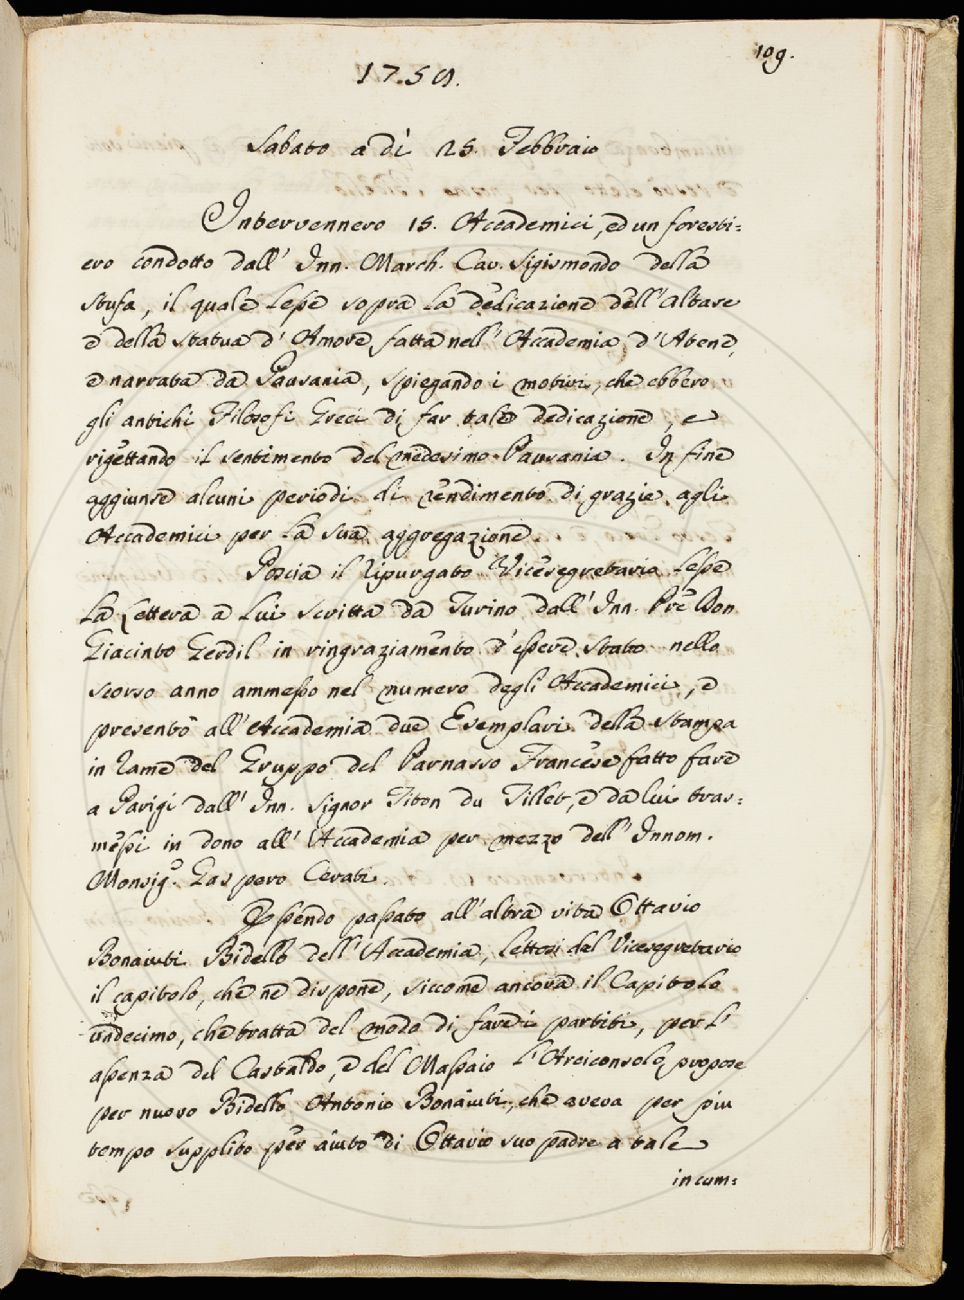 109.
1750.
Sabato a dì 25. Febbraio
Intervennero 15. Accademici, ed un foresti=
ero condotto dall' Inn. March. Cav. Sigismondo della
Stufa, il quale lesse sopra la dedicazione dell'Altare
e della statua d' Amore, fatta nell' Accademia d' Atene,
e narrata da Pausania, spiegando i motivi, che ebbero
gli antichi Filosofi Greci di far tale dedicazione, e
rigettando il sentimento del medesimo Pausania. In fine
aggiunse alcuni periodi di rendimento di grazie agli
Accademici per la sua aggregazione.
Poscia il Ripurgato Vicesegretario lesse
la Lettera a lui scritta da Turino dall' Inn. Pre Don
Giacinto Gerdil in ringraziamento d' essere stato nello
scorso anno ammesso nel numero degli Accademici, e
presentò all' Accademia due Esemplari della stampa
in rame del Gruppo del Parnasso Francese fatto fare
a Parigi dall' Inn. Signor Titon du Tillet, e da lui tras=
messi in dono all' Accademia per mezzo dell' Innom.
Monsig.e Gaspero Cerati.
Essendo passato all'altra vita Ottavio
Bonaiuti Bidello dell' Accademia, lettosi dal Vicesegretario
il capitolo, che ne dispone, siccome ancora il Capitolo
undecimo, che tratta del modo di fare i partiti, per l'
assenza del Castaldo, e del Massaio l'Arciconsolo propose
per nuovo Bidello Antonio Bonaiuti, che aveva per piu
tempo supplito per aiuto di Ottavio suo padre a tale
incum=